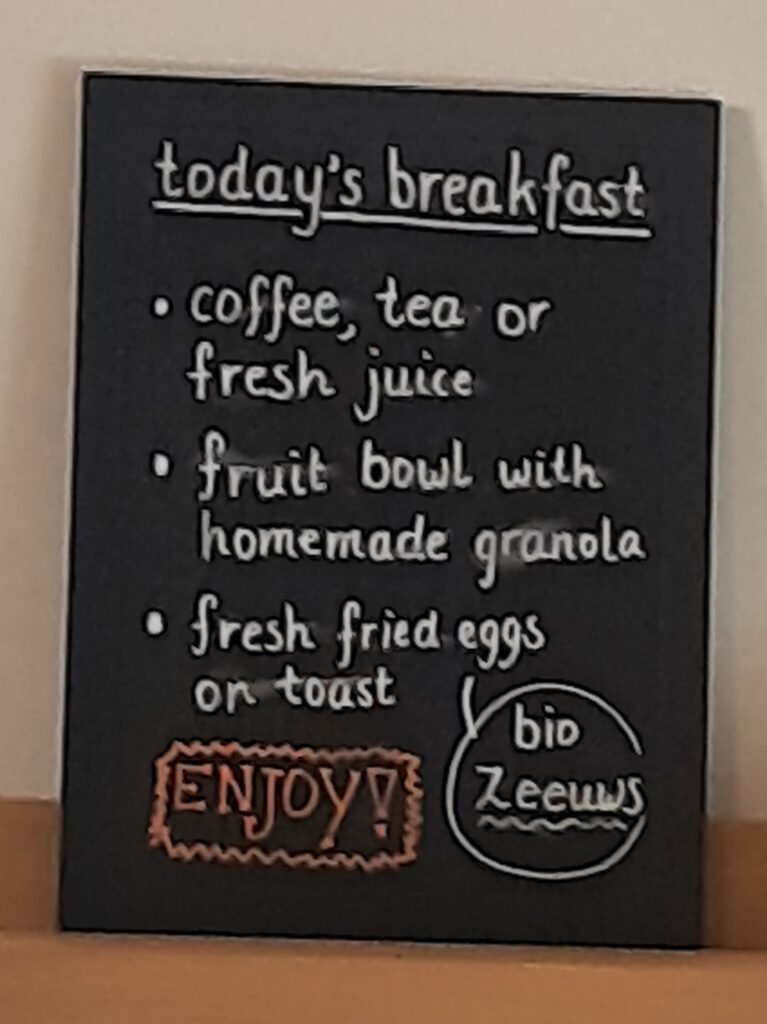 today's breakfast
• coffee, tea or
fresh juice
• fruit bowl with
homemade granola
• fresh fried eggs
on toast
bio
Zeeuws
ENJOY!